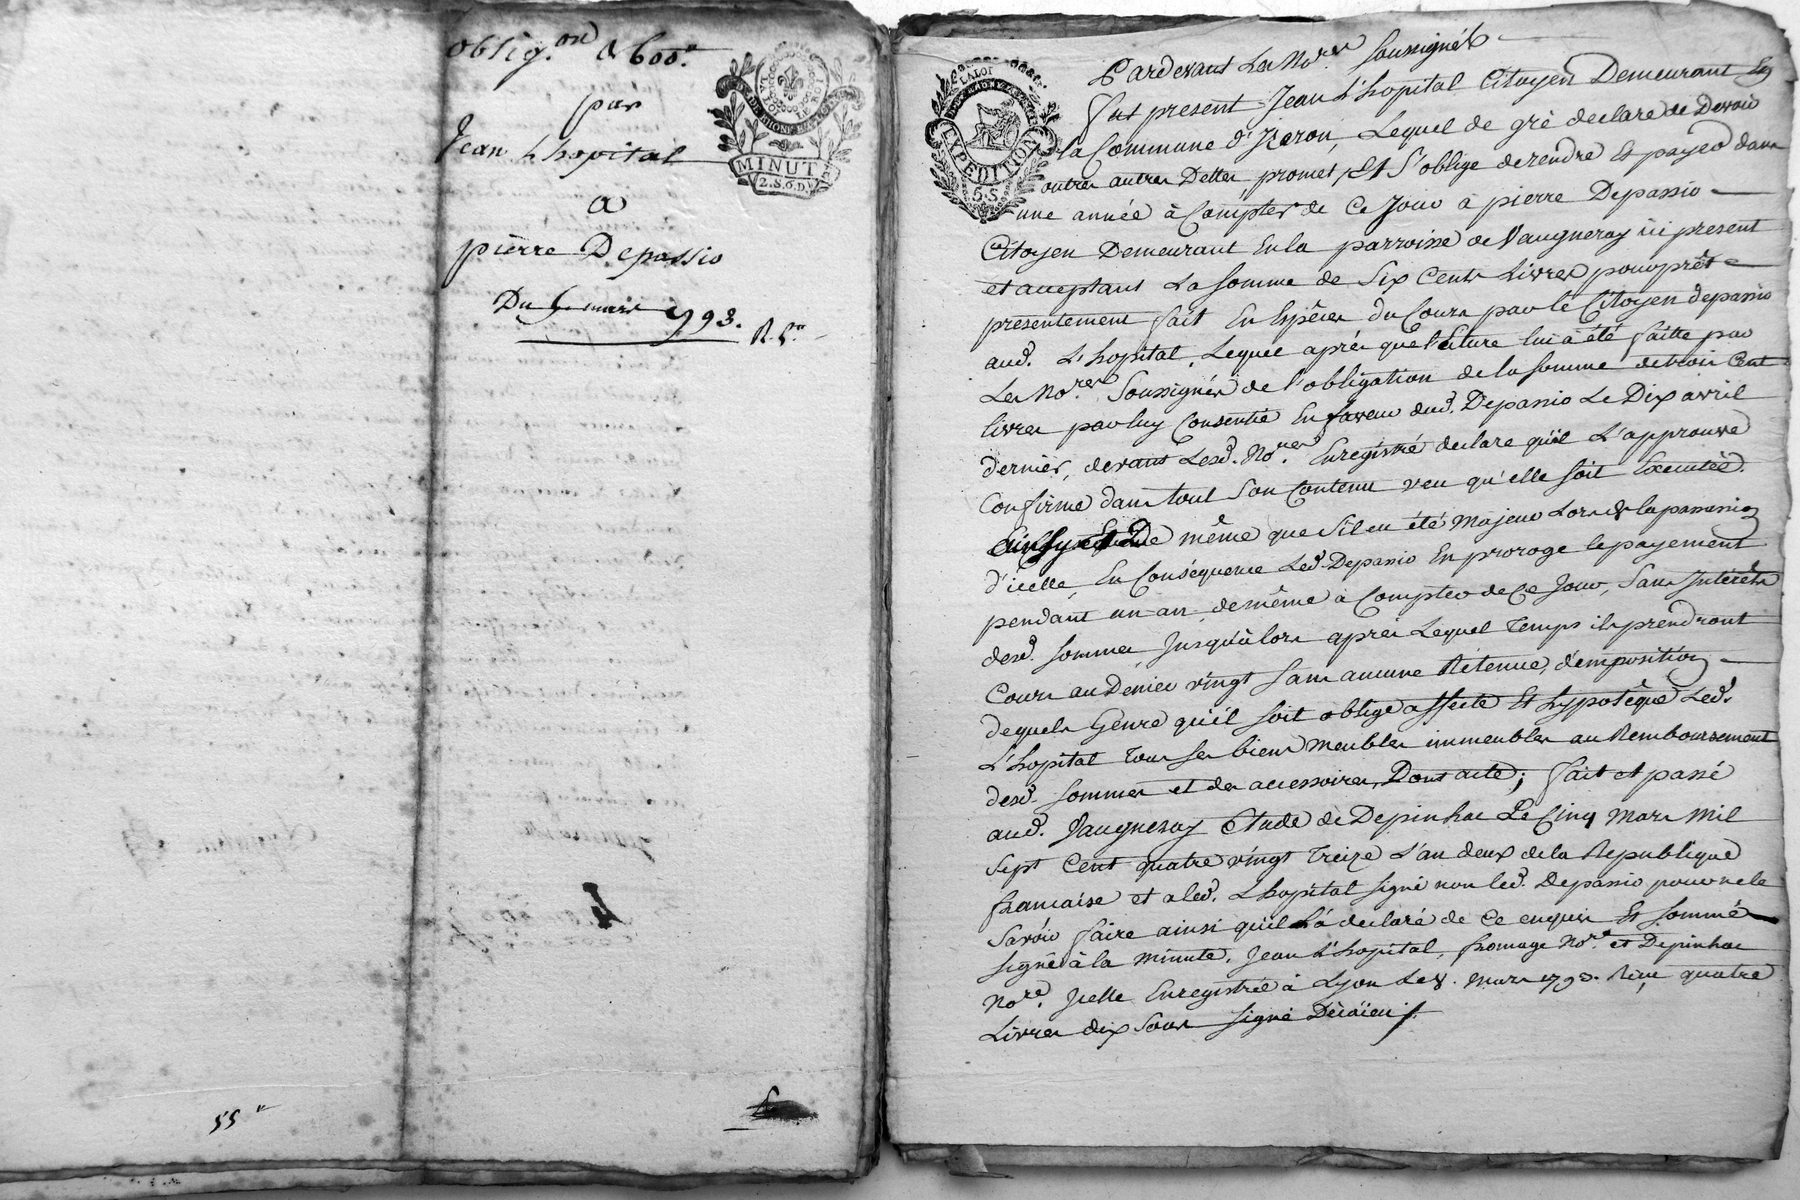 oblig.on de 600.lt
par
Jean Lhopital
a
pierre Depassio
Du 5 mars 1793.
LA LOI
LE ROI
DEP. DU RHONE ET LOIRE
MINUT
2.S.6.D
55.lt
LA LOI
EXPEDITION
5.S.
Pardevant Les No.res soussignés
fut present Jean L'hopital Citoyen Demeurant En
la Commune d'Izeron, Lequel de gré declare de Devoir
outre autres Dettes, promet, Et S'oblige de rendre Et payer dans
une année à Compter de Ce Jour à pierre Depassio
Citoyen Demeurant En la parroisse de Vaugneray ici present
et acceptant La somme de Six Cents Livres pour prêt
presentement fait En Espéces du Cours par le Citoyen depassio
aud. L'hopital, Lequel aprés que lecture lui à été faitte par
Les No.res Soussignés de l'obligation de la somme de trois Cent
livres par luy Consentie En faveur dud. Depassio Le Dix avril
dernier, devant Lesd. No.res Enregistré declare qu'il L'approuve
Confirme dans tout Son Contenu veu qu'elle soit Executée
de même que s'il eu été Majeur Lors de la passation
d'icelle, En Conséquence Led. Depassio En proroge le payement
pendant un an de même à Compter de Ce Jour, Sans Intérêts
desd. sommes Jusqu'alors aprés Lequel Temps ils prendront
Cours au Denier vingt sans aucune Retenue, d'imposition
dequels Genre qu'il soit oblige affecte Et hypotèque Led.
L'hopital Tous ses biens Meubles immeubles au Remboursement
desd. sommes et des accessoires, Dont acte; fait et passé
aud. Vaugneray Etude de Depinhac Le Cinq Mars Mil
Sept Cent quatre vingt Treize L'an deux de la Republique
francaise et a led. Lhopital signé non led. Depassio pour ne le
Savoir faire ainsi qu'il L'a declaré de ce enquis Et sommé
signé à la minute. Jean L'hopital, fromage No.re et Depinhac
No.re Icelle Enregistrée à Lyon Le 8. Mars 1793. Reçu quatre
Livres dix Sous signé